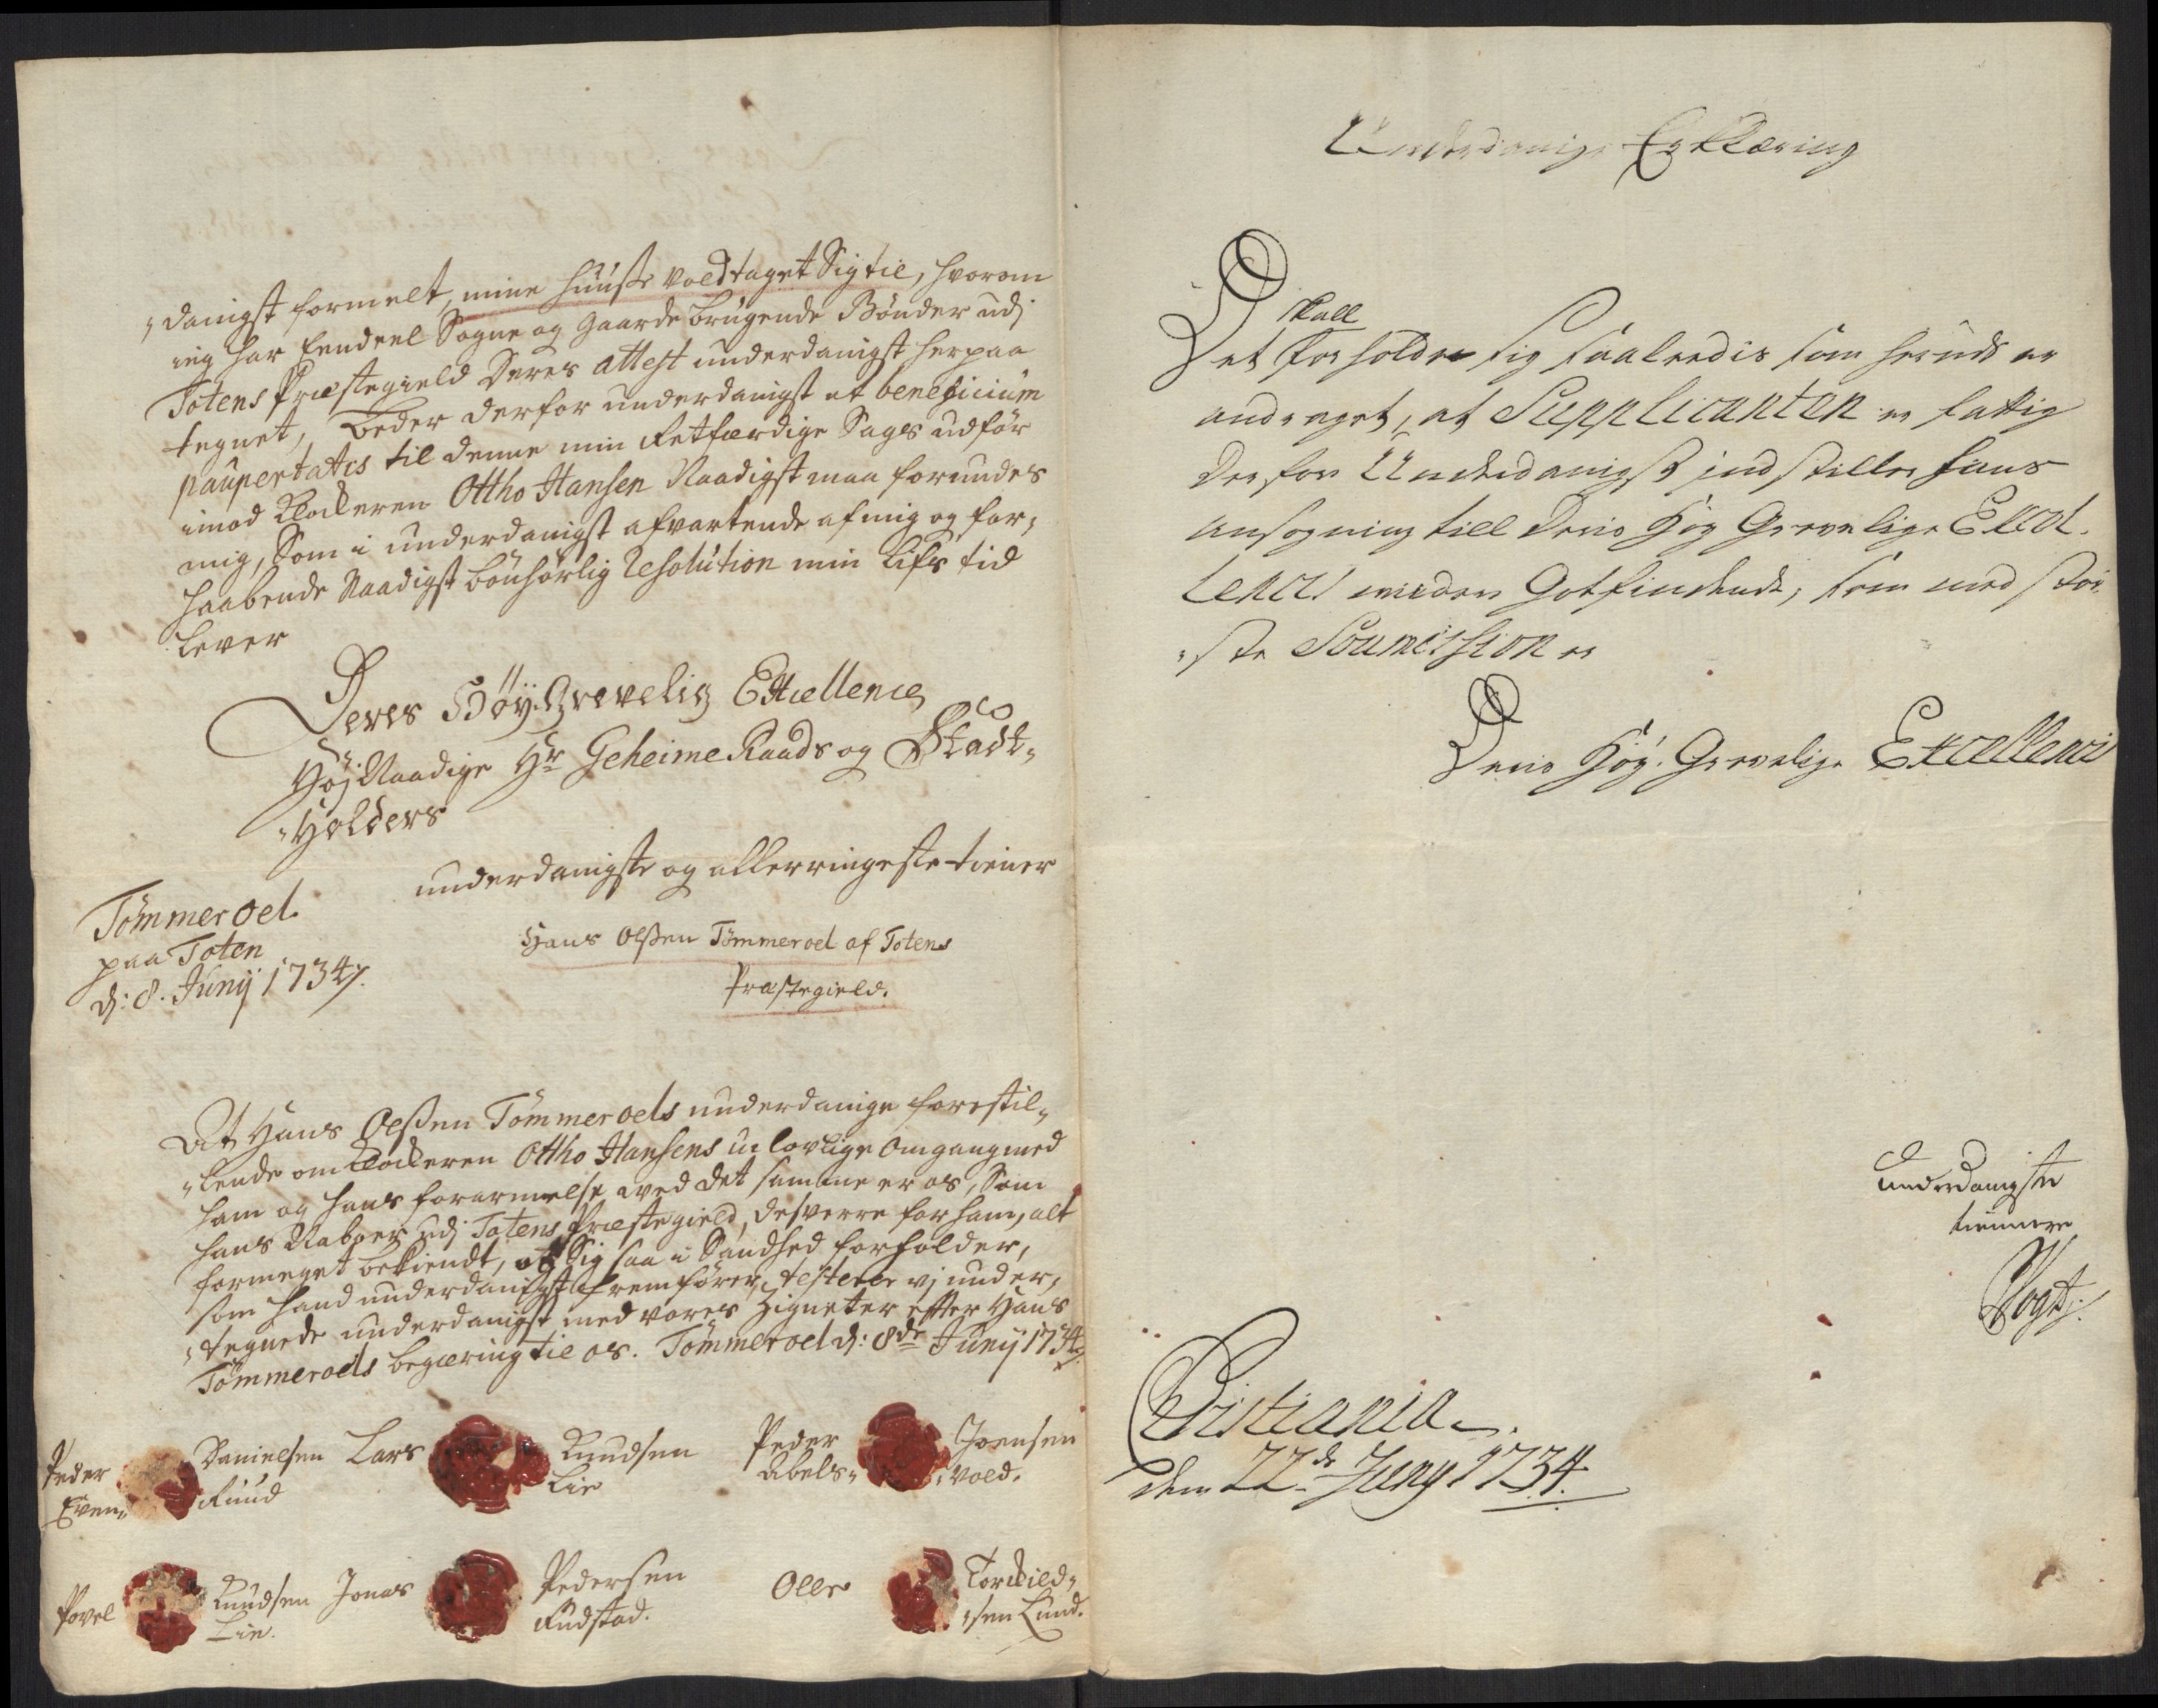 „danigst formelt, mine huuse voldtaget Sig til, hvorom
ieg har Eendeel Sogne og Gaarde brugende Bønder udj
Totens Præstegield Deres attest underdanigst herpaa
tegnet, Beder derfor underdanigst at beneficium
paupertatis til denne min Retfærdige Sages udfør
imod Klockeren Ottho Hansen Naadigst maa forundes
mig, Som i underdanigst afvartende af mig og for„
haabende Naadigst bønhørlig Resolution min Lifs tid
Lever
Deres Høy Grevelig Excellence
Høj Naadige Hr Geheime Raads og Stadt„
„Holders
underdanigste og allerringeste tiener
Tömmeroel
paa Toten
d: 8. Junÿ 1734.
Hans Olsen Tömmeroel af Totens
Præstegield.
At Hans Olsen Tömmeroels underdanige forestil„
„lende om Klockeren Ottho Hansens ulovlige Omgang med
ham og hans forarmelse, ved det samme er os, Som
hans Naboer udj Totens Præstegield, desverre for ham, alt
formeget bekiendt, at Sig saa i Sandhed forholder,
som hand underdanigst fremfører, testerer vj under„
„tegnede underdanigst med vores Zigneter efter Hans
Tömmeroels begæring til os. Tömmeroel d: 8de Junÿ 1734.
Peder Danielsen Lars Knudsen Peder Joensen
Even„ Ruud Lie Abels„ „vold.
Povel Knudsen Jonas Pedersen Olle Torkild„
Lie. Rudstad. „sen Lund.
Underdanige Erklæring
skall
Det forholder sig saaleedis som herudj er
andraget, at Supplicanten er fattig
derfor Underdanigst indstilles hans
ansøgning till Deris Høy Grevelige Excel„
lences Gotfindende, som med stør„
„ste Soumission er
Deris Høy. Grevelige Excellences
Underdanigste
tiennere
Vogt
Christiania
den 22de Juny 1734.